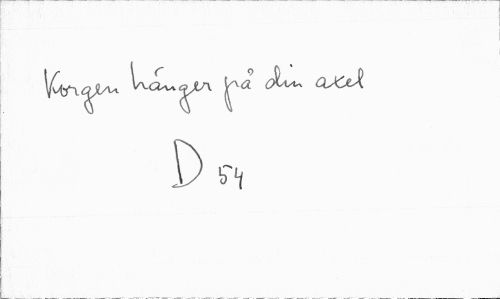 Korgen hänger på din axel
D 54